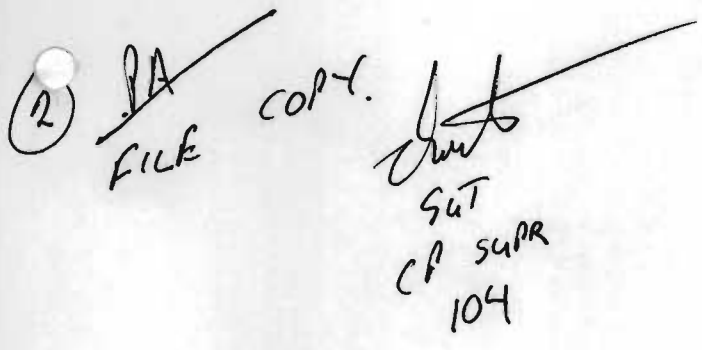 2 PA
FILE COPY.
SGT
CP SUPR
104